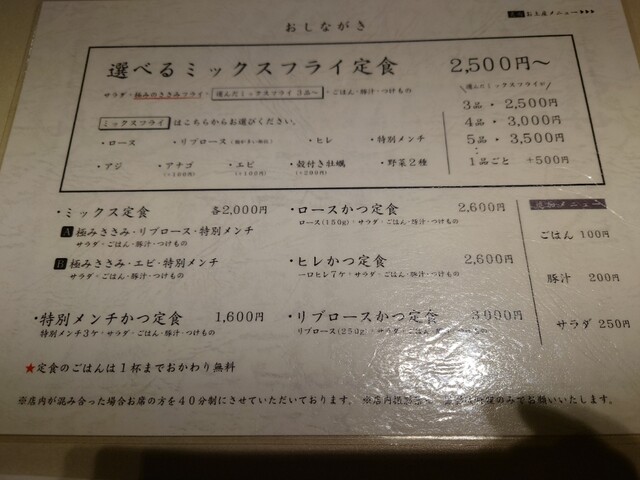 お土産メニュー▶▶▶
おしながき
選べるミックスフライ定食 2,500円〜
サラダ・極みのささみフライ・選んだミックスフライ3品〜・ごはん・豚汁・つけもの
ミックスフライ はこちらからお選びください。
・ロース ・リブロース ・ヒレ ・特別メンチ
・アジ ・アナゴ ・エビ ・殻付き牡蠣 ・野菜2種
(+100円) (+200円)
\選んだミックスフライが/
3品・2,500円
4品・3,000円
5品・3,500円
1品ごと +500円
・ミックス定食 各2,000円
A 極みささみ・リブロース・特別メンチ
サラダ・ごはん・豚汁・つけもの
B 極みささみ・エビ・特別メンチ
サラダ・ごはん・豚汁・つけもの
・特別メンチかつ定食 1,600円
特別メンチ3ケ・サラダ・ごはん・豚汁・つけもの
・ロースかつ定食 2,600円
ロース(150g)・サラダ・ごはん・豚汁・つけもの
・ヒレかつ定食 2,600円
一口ヒレ7ケ・サラダ・ごはん・豚汁・つけもの
・リブロースかつ定食 3,000円
リブロース(250g)・サラダ・ごはん・豚汁・つけもの
追加メニュー
ごはん 100円
豚汁 200円
サラダ 250円
★定食のごはんは1杯までおかわり無料
※店内が混み合った場合お席の方を40分制にさせていただいております。 ※店内撮影 のみでお願いいたします。